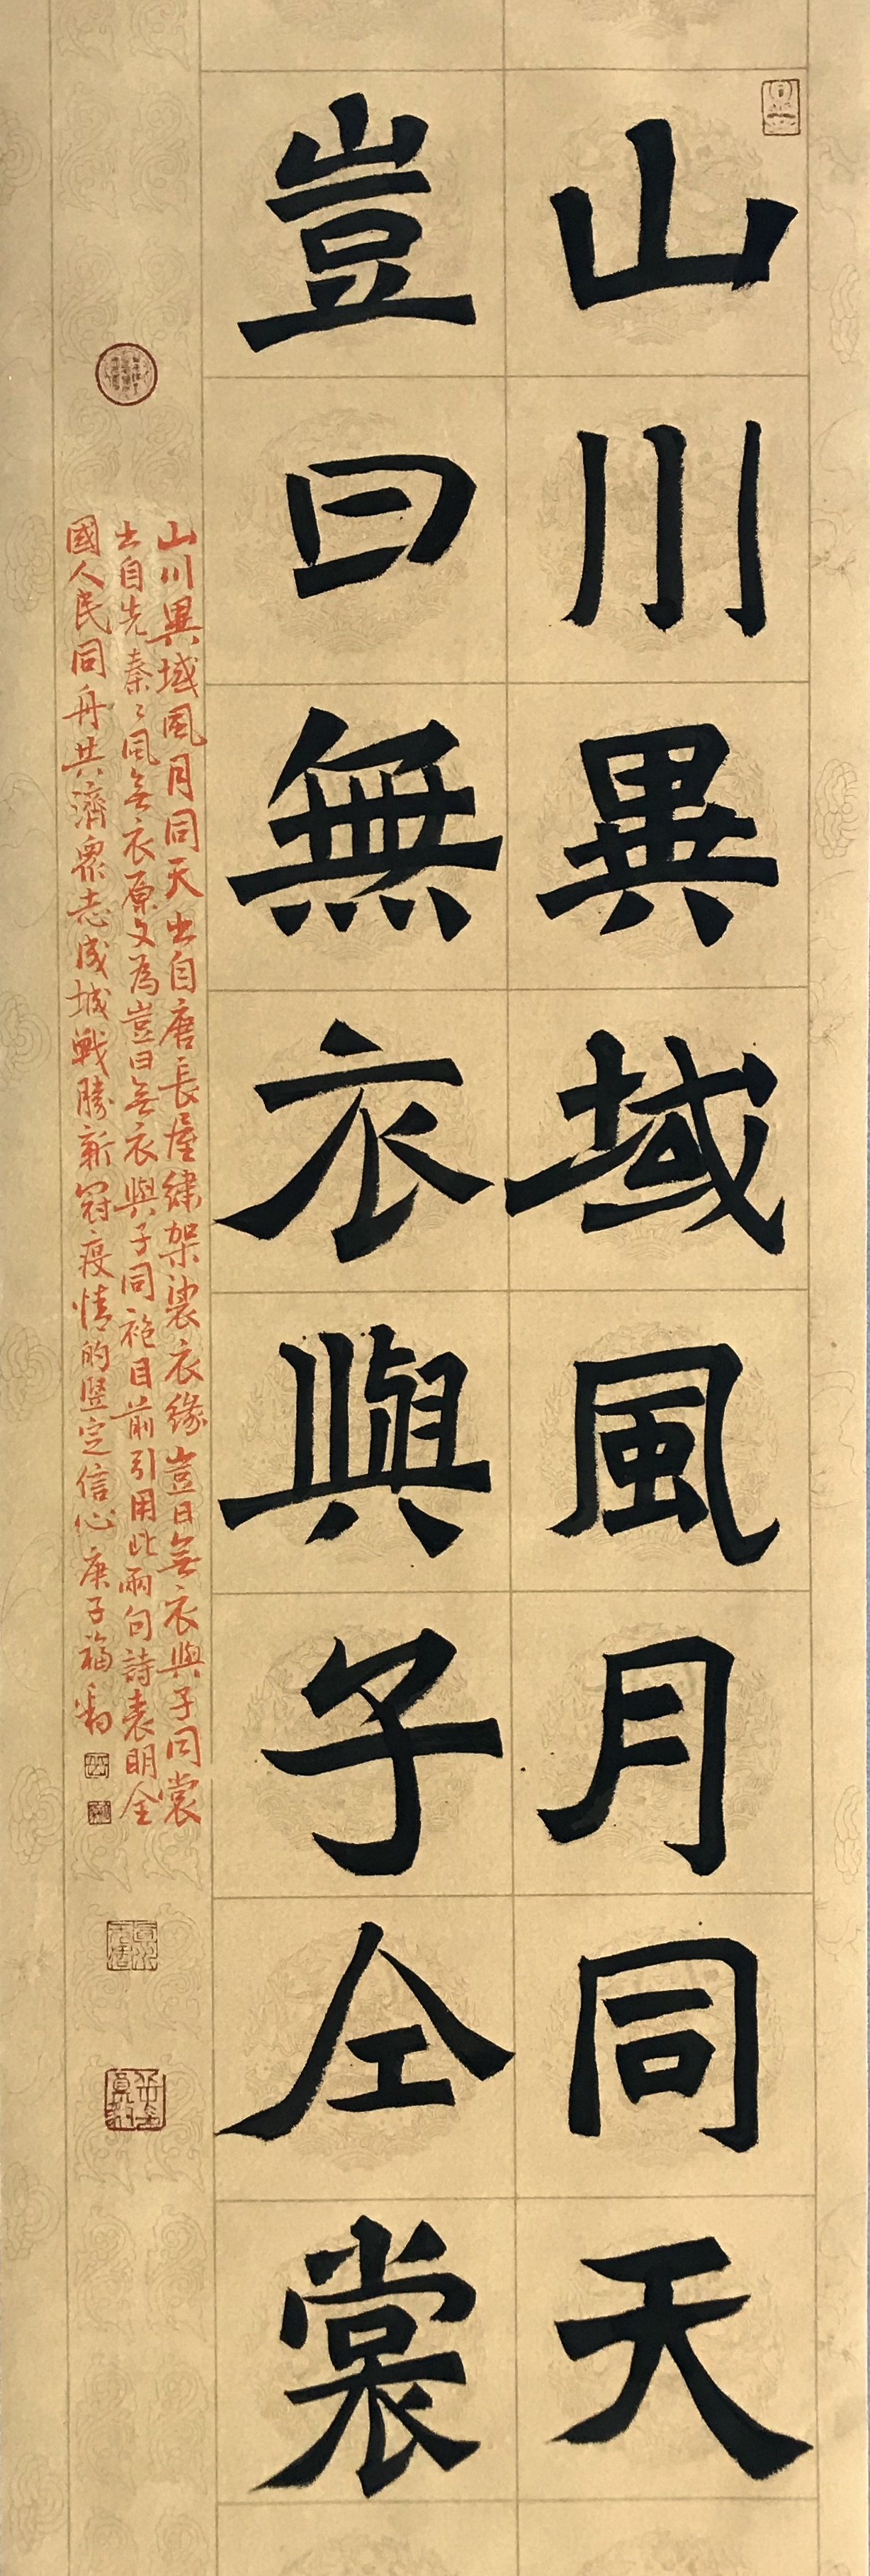 山川異域風月同天
豈曰無衣與子仝裳
山川異域風月同天出自唐長屋繡架裟衣緣豈曰無衣與子同裳
出自先秦秦風無衣原文為豈曰無衣與子同袍目前引用此兩句詩表明全
國人民同舟共濟眾志成城戰勝新冠疫情的堅定信心 庚子福